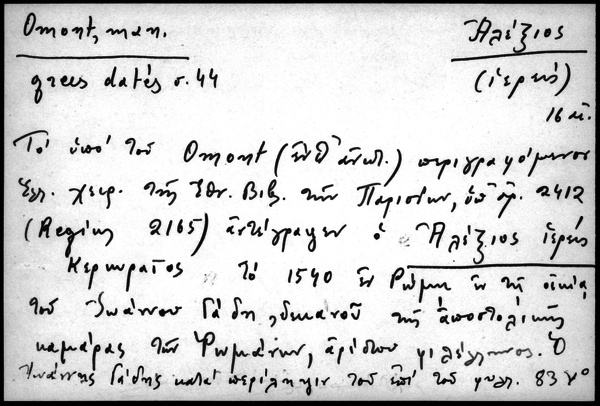 Omont, man. Ἀλέξιος
grecs datés σ. 44 (ἱερεύς)
16 αἰ.
Τὸ ὑπὸ τοῦ Omont (ἔνθ' ἀνωτ.) περιγραφόμενον
ἑλλ. χειρ. τῆς Ἐθν. Βιβ. τῶν Παρισίων, ὑπ' ἀρ. 2412
(Regius 2165) ἀντέγραψεν ὁ Ἀλέξιος ἱερεὺς
Κερκυραῖος τὸ 1540 ἐν Ῥώμῃ ἐν τῇ οἰκίᾳ
τοῦ Ἰωάννου Γάδη, δεκανοῦ τῆς ἀποστολικῆς
καμάρας τῶν Ῥωμάνων, ἀρίστου φιλέλληνος. Ὁ
Ἰωάννης Γάδης κατὰ περίληψιν τοῦ ἐπὶ τοῦ φυλλ. 83 vº